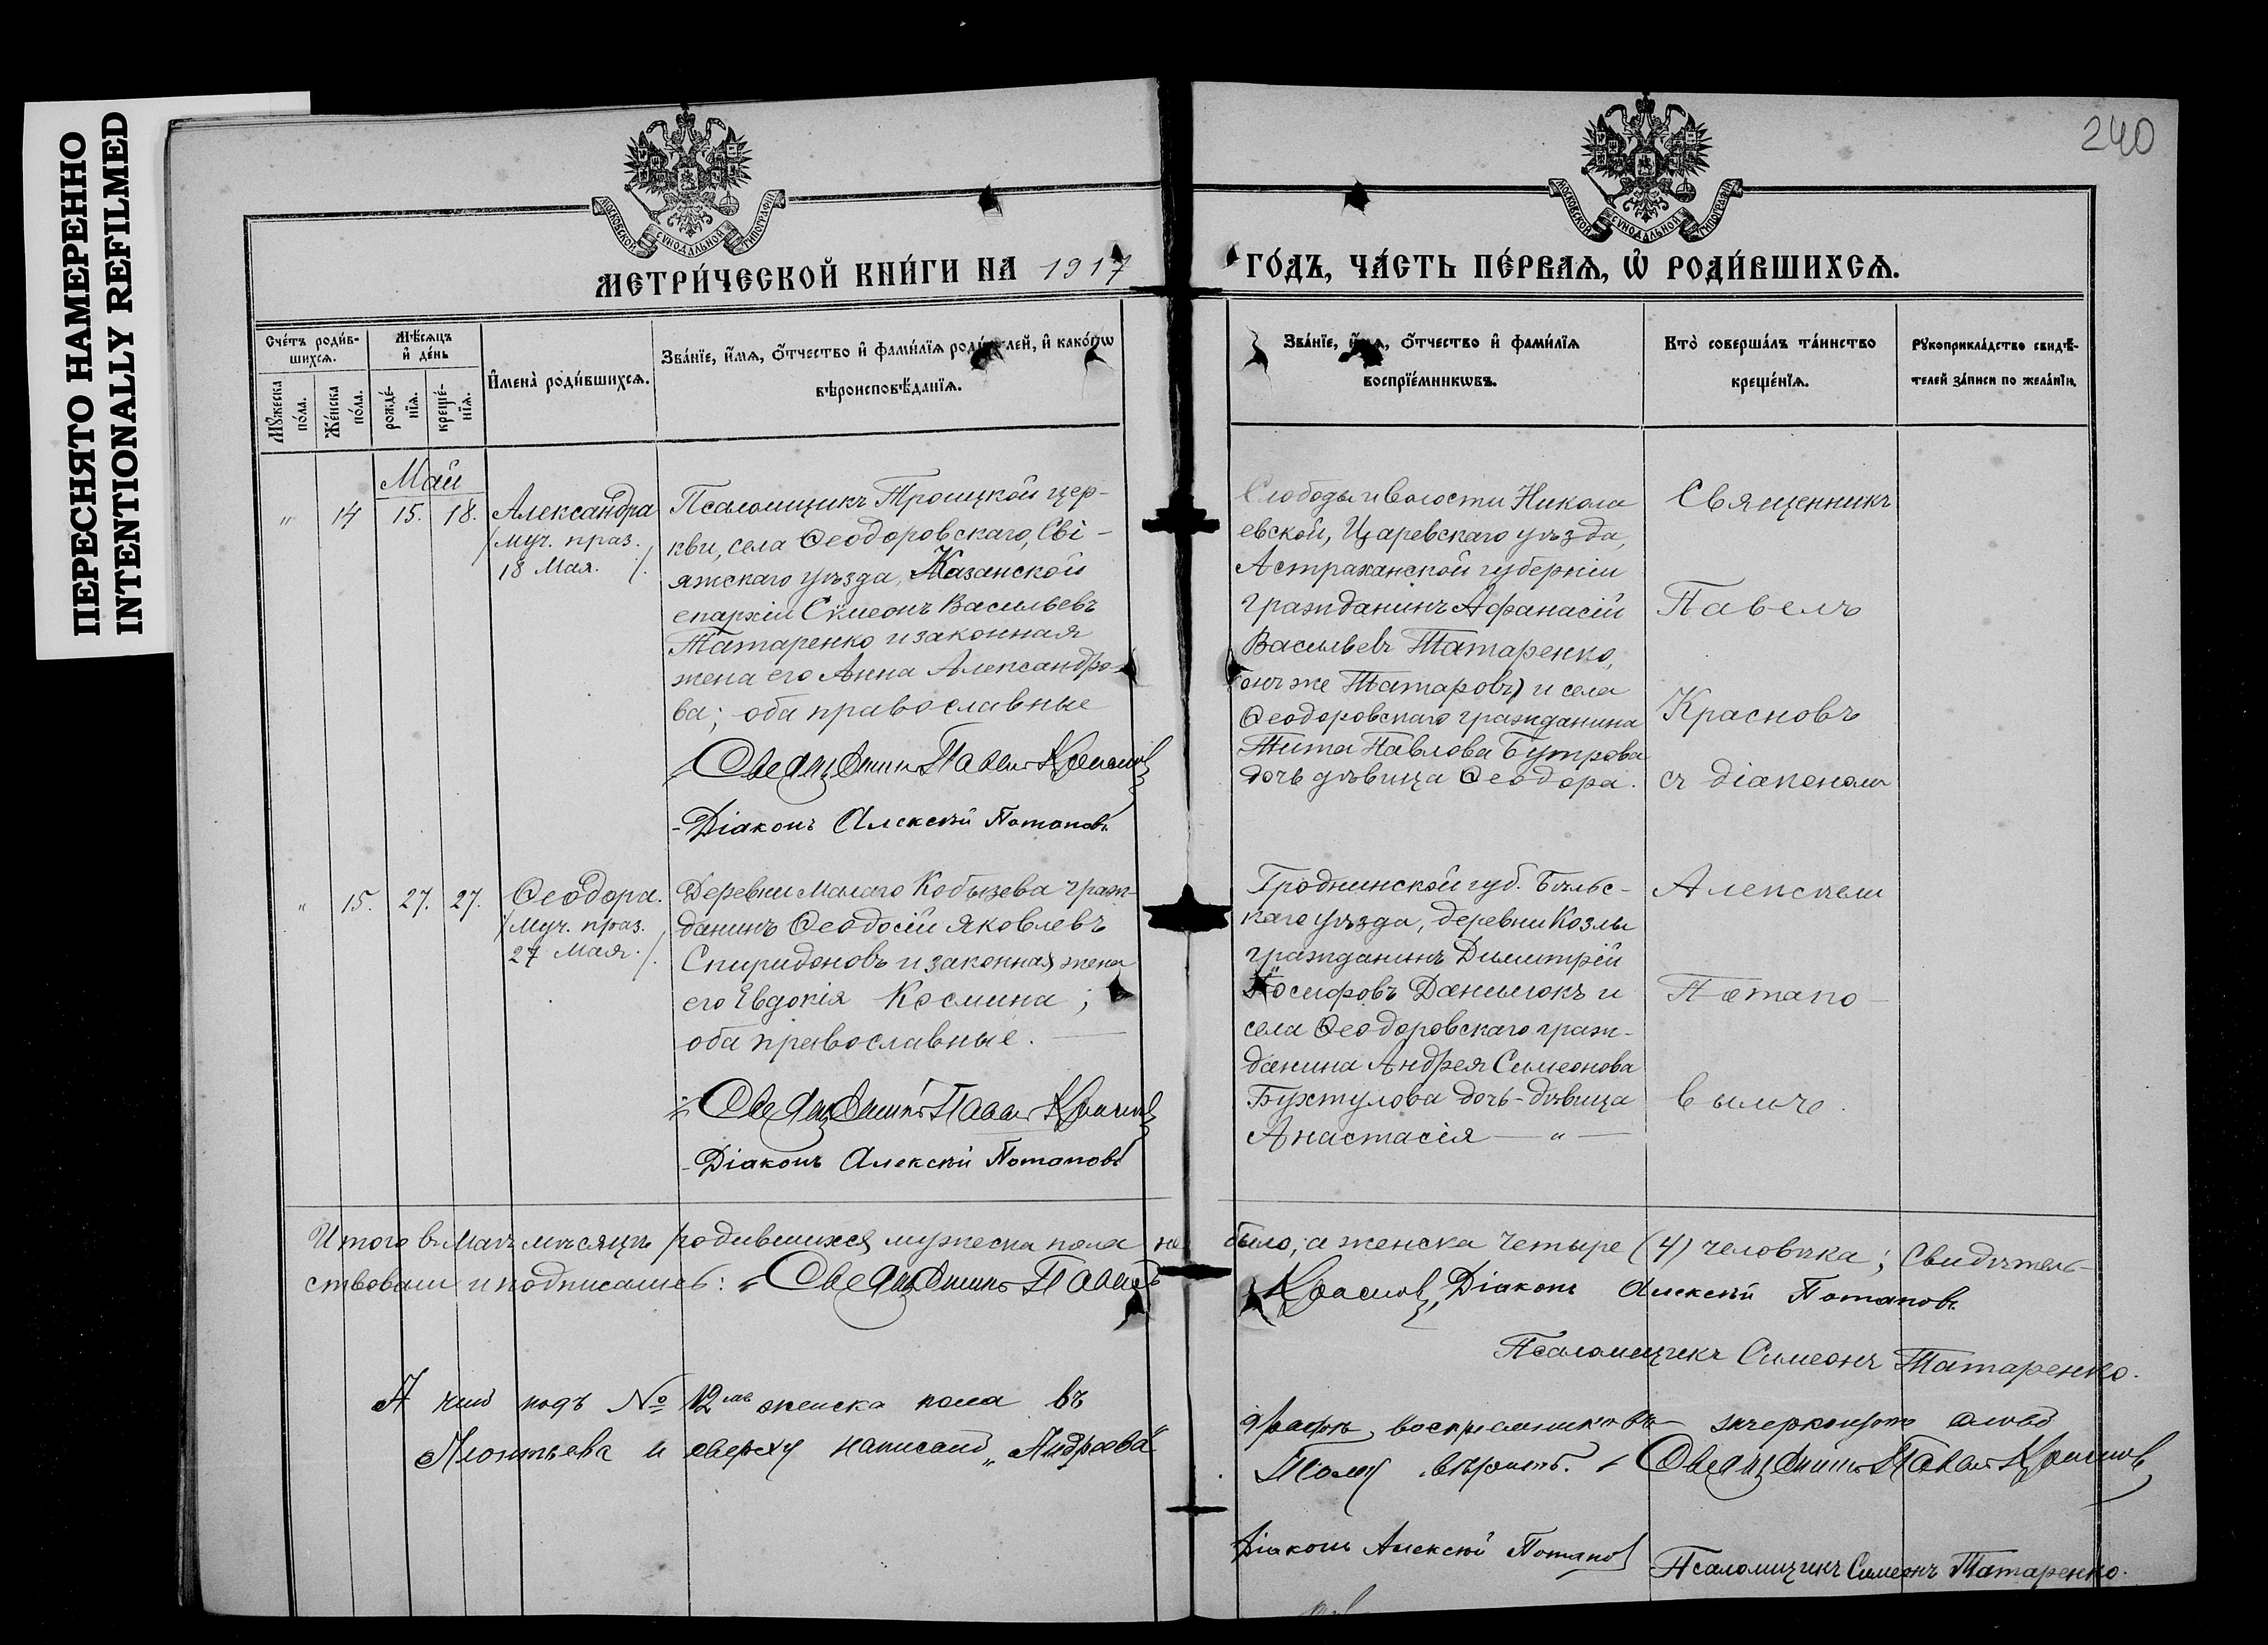 ПЕРЕСНЯТО НАМЕРЕННО
INTENTIONALLY REFILMED
240
МОСКОВСКОЙ СУНОДАЛЬНОЙ ТИПОГРАФІИ
МОСКОВСКОЙ СУНОДАЛЬНОЙ ТИПОГРАФІИ
МЕТРИ́ЧЕСКОЙ КНИ́ГИ НА 1917
ГО́ДЪ, ЧА́СТЬ ПЕ́РВАѦ, Ѽ РОДИ́ВШИХСѦ.
Сче́тъ роди́в-
шихсѧ.
Мꙋ́жеска
по́ла.
Же́нска
по́ла.
Мѣ́сѧцъ
и҆ де́нь
рожде́-
нїѧ.
креще́-
нїѧ.
И҆мена̀ роди́вшихсѧ.
Зва́нїе, и҆́мѧ, ѻ҆́тчество и҆ фами́лїѧ роди́телей, и҆ како́гѡ
вѣроисповѣ́данїѧ.
Зва́нїе, и҆́мѧ, ѻ҆́тчество и҆ фами́лїѧ
воспрїе́мникѡвъ.
Кто̀ соверша́лъ та́инство
креще́нїѧ.
Рꙋкоприкла́дство свидѣ́-
телей за́писи по жела́нїю.
Май
" 14 15. 18.
Александра
/муч. праз.
18 Мая. /.
Псаломщикъ Троицкой цер-
кви, села Ѳеодоровскаго, Сві-
яжскаго уѣзда, Казанской
епархіи Сѵмеонъ Васильевъ
Татаренко и законная
жена его Анна Александро-
ва; оба православные
Священникъ Павелъ Красновъ
Діаконъ Алексѣй Потаповъ
Слободы и волости Никола
евской, Царевскаго уѣзда,
Астраханской губерніи
гражданинъ Афанасій
Васильевъ Татаренко,
(онъ же Татаровъ) и села
Ѳеодоровскаго гражданина
Тита Павлова Бутрова
дочь дѣвица Ѳеодора.
Священникъ
Павелъ
Красновъ
съ діакономъ
" 15. 27. 27.
Ѳеодора.
/муч. праз.
27 Мая. /.
Деревни Малаго Кобызева граж-
данинъ Ѳеодосій Яковлевъ
Спиридоновъ и законная жена
его Евдокія Космина;
оба православные.
Священникъ Павелъ Красновъ
Діаконъ Алексѣй Потаповъ
Гродненской губ. Бѣльс-
каго уѣзда, деревни Козлы
гражданинъ Димитрій
Іосифовъ Данилюкъ и
села Ѳеодоровскаго граж-
данина Андрея Симеонова
Бухтулова дочь-дѣвица
Анастасія — " —
Алексѣемъ
Потапо-
вымъ.
Итого въ Маѣ мѣсяцѣ родившихся мужеска пола не было, а женска четыре (4) человѣка; Свидѣтель-
ствовали и подписались: Священникъ Павелъ Красновъ, Діаконъ Алексѣй Потаповъ
Псаломщикъ Симеонъ Татаренко.
А что подъ № 12мъ женска пола въ графѣ воспріемниковъ зачеркнуто слово
Леонтьева и сверху написано „Андреева" тому вѣрить. Священникъ Павелъ Красновъ
Діаконъ Алексѣй Потаповъ
Псаломщикъ Симеонъ Татаренко.